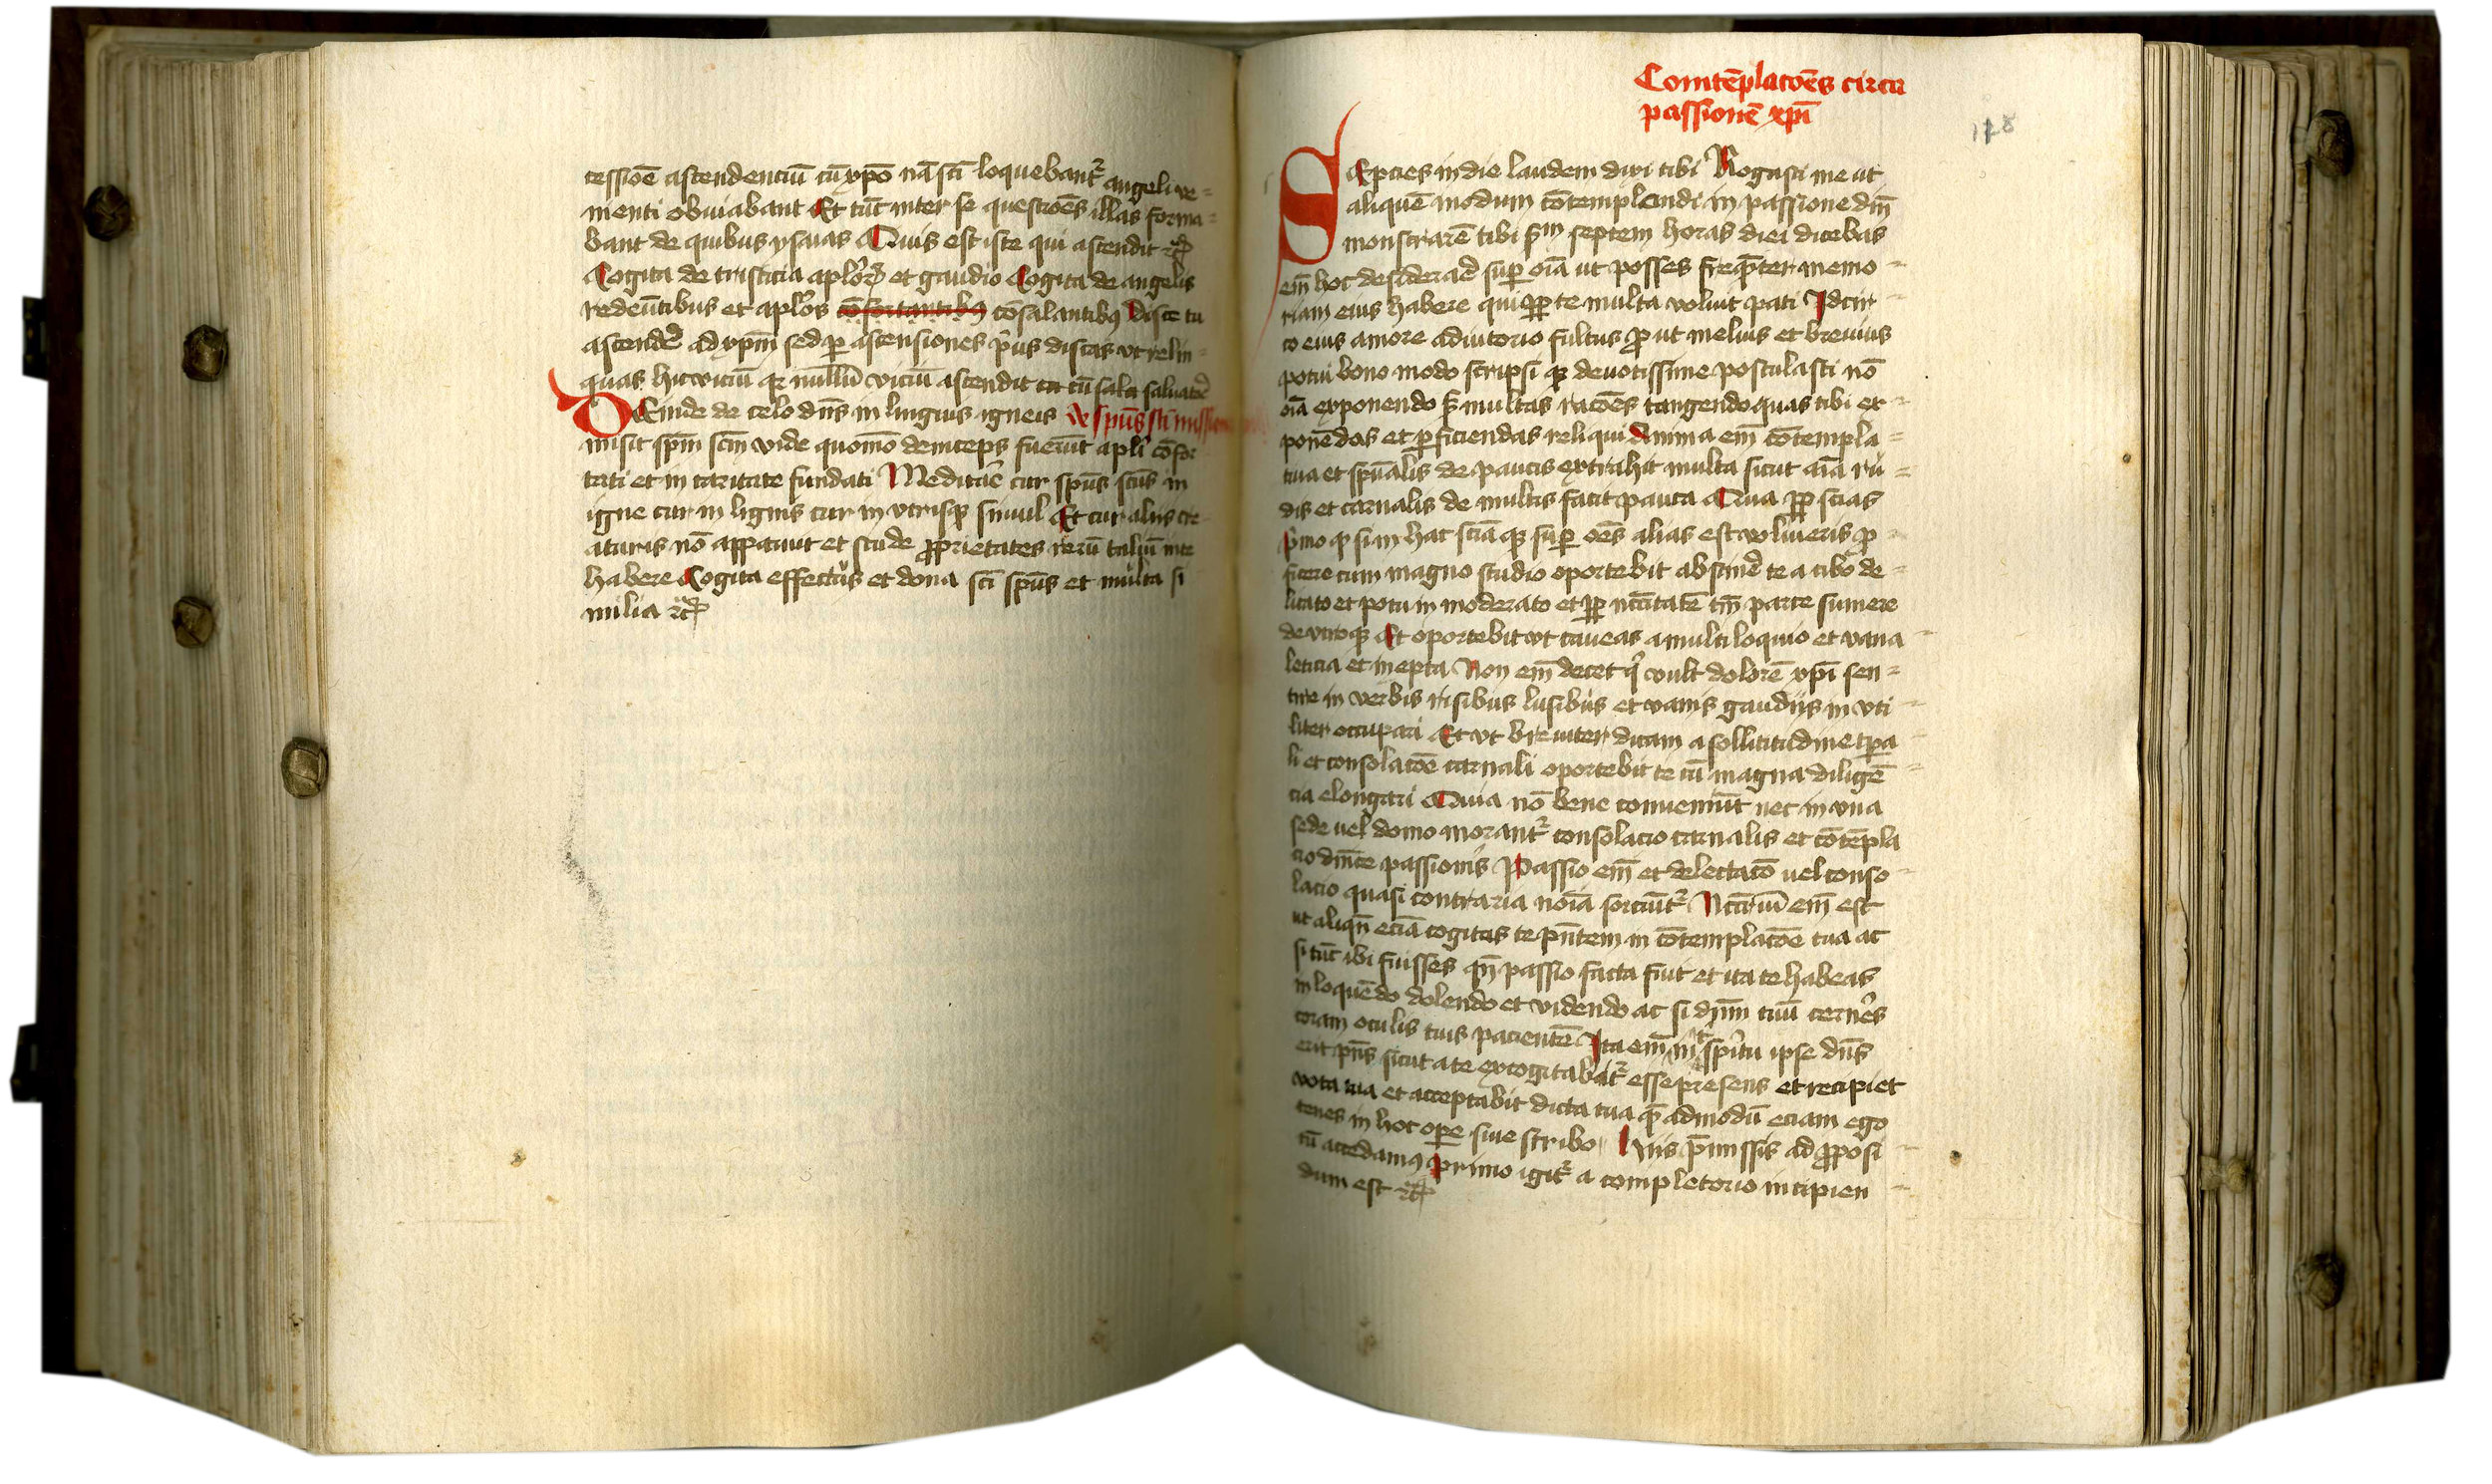 cessionē ascendenciū cū xpō nā scī loquebant᷑ angeli ve-
nienti obviabant Et tūc inter se questiōes illas forma-
bant de quibus ysaias Quis est iste qui ascendit ⁊c̄
Cogita de tristicia aplōꝝ et gaudio Cogita de angelis
redeūtibus et aplōs cōfortantibꝯ cōsolantibꝯ Disce tu
ascendē ad xpm̄ sed ꝑ ascensiones prius discas ut relin-
quas hic viciū qꝛ nullū viciū ascendit cū cū sala saluatoē
Deinde de celo dn̄s in linguis igneis De spūs scī missione
misit spm̄ scm̄ vide quomō deinceps fuerūt aplī cōfor
tati et in caritate fundati Meditāe cur spūs scūs in
igne cur in liguis cur in vtrisqꝫ simul Et cur aliis cre-
aturis nō apparuit et stude ꝓprietates rerū taliū inte
habere Cogita effectus et dona scī spūs et multa si
milia ⁊c̄
Comtēplacōes circa
passionē xpī
178
SEpcies in die laudem dixi tibi Rogasti me ut
aliquē modum cōtemplandi in passione dn̄i
monstrarē tibi scdm septem horas diei dicebas
em̄ hoc desideraē suꝑ oīa ut posses freqn̄ter memo-
riam eius habere qui ꝓpt te multa voluit pati Idcir-
co eius amore adiutorio fultus ꝓut melius et brevius
potui bono modo scripsi qꝫ deuotissime postulasti nō
oīa exponendo sꝫ multas racōes tangendo quas tibi ex-
ponēdas et ꝑficiendas reliqui Anima em̄ cōtempla-
tiua et spūalis de paucis extrahit multa sicut aīa ru-
dis et carnalis de multis facit pauca Qua ꝓpt scias
primo ꝙ si in hac sciā qꝫ suꝑ oēs alias est volueris ꝓ-
ficere cum magno studio oportebit abstinē te a cibo de-
licato et potu inmoderato et ꝓpt ncc̄itatē tm̄ parte sumere
de vtroqꝫ Et oportebit vt caveas a multiloquio et vana-
leticia et inepta Non em̄ decet qui vult dolorē xpī sen-
tire in verbis risibus lusibus et vanis gaudiis in vti-
liter occupari Et vt breuiter dicam a sollicitudine tꝑa-
li et consolacōe carnali oportebit te cū magna diligē-
cia elongari Quia nō bene conueniūt nec in vna
sede uel domo morant᷑ consolacio carnalis et cōtēpla
cio dn̄ice passionis Passio em̄ et delectacō uel conso-
lacio quasi contraria noīa sorciūt᷑ Ncc̄ariū em̄ est
ut aliqn̄ eciā cogites te pn̄tem in cōtemplacōe tua ac
si tūc ibi fuisses qn̄ passio facta fuit et ita te habeas
in loquēdo dolendo et videndo ac si dn̄m tuū cernēs
coram oculis tuis pacientē Ita em̄ in spiritu ipse dn̄s
erit pn̄s sicut a te excogitabit᷑ esse presens et recipiet
vota tua et acceptabit dicta tua quēadmodū eciam ego
tenes in hoc oꝑe siue scribo Hiis p̄missis ad ꝓposi-
tū accedamꝯ Primo igit᷑ a completorio incipien-
dum est ⁊c̄